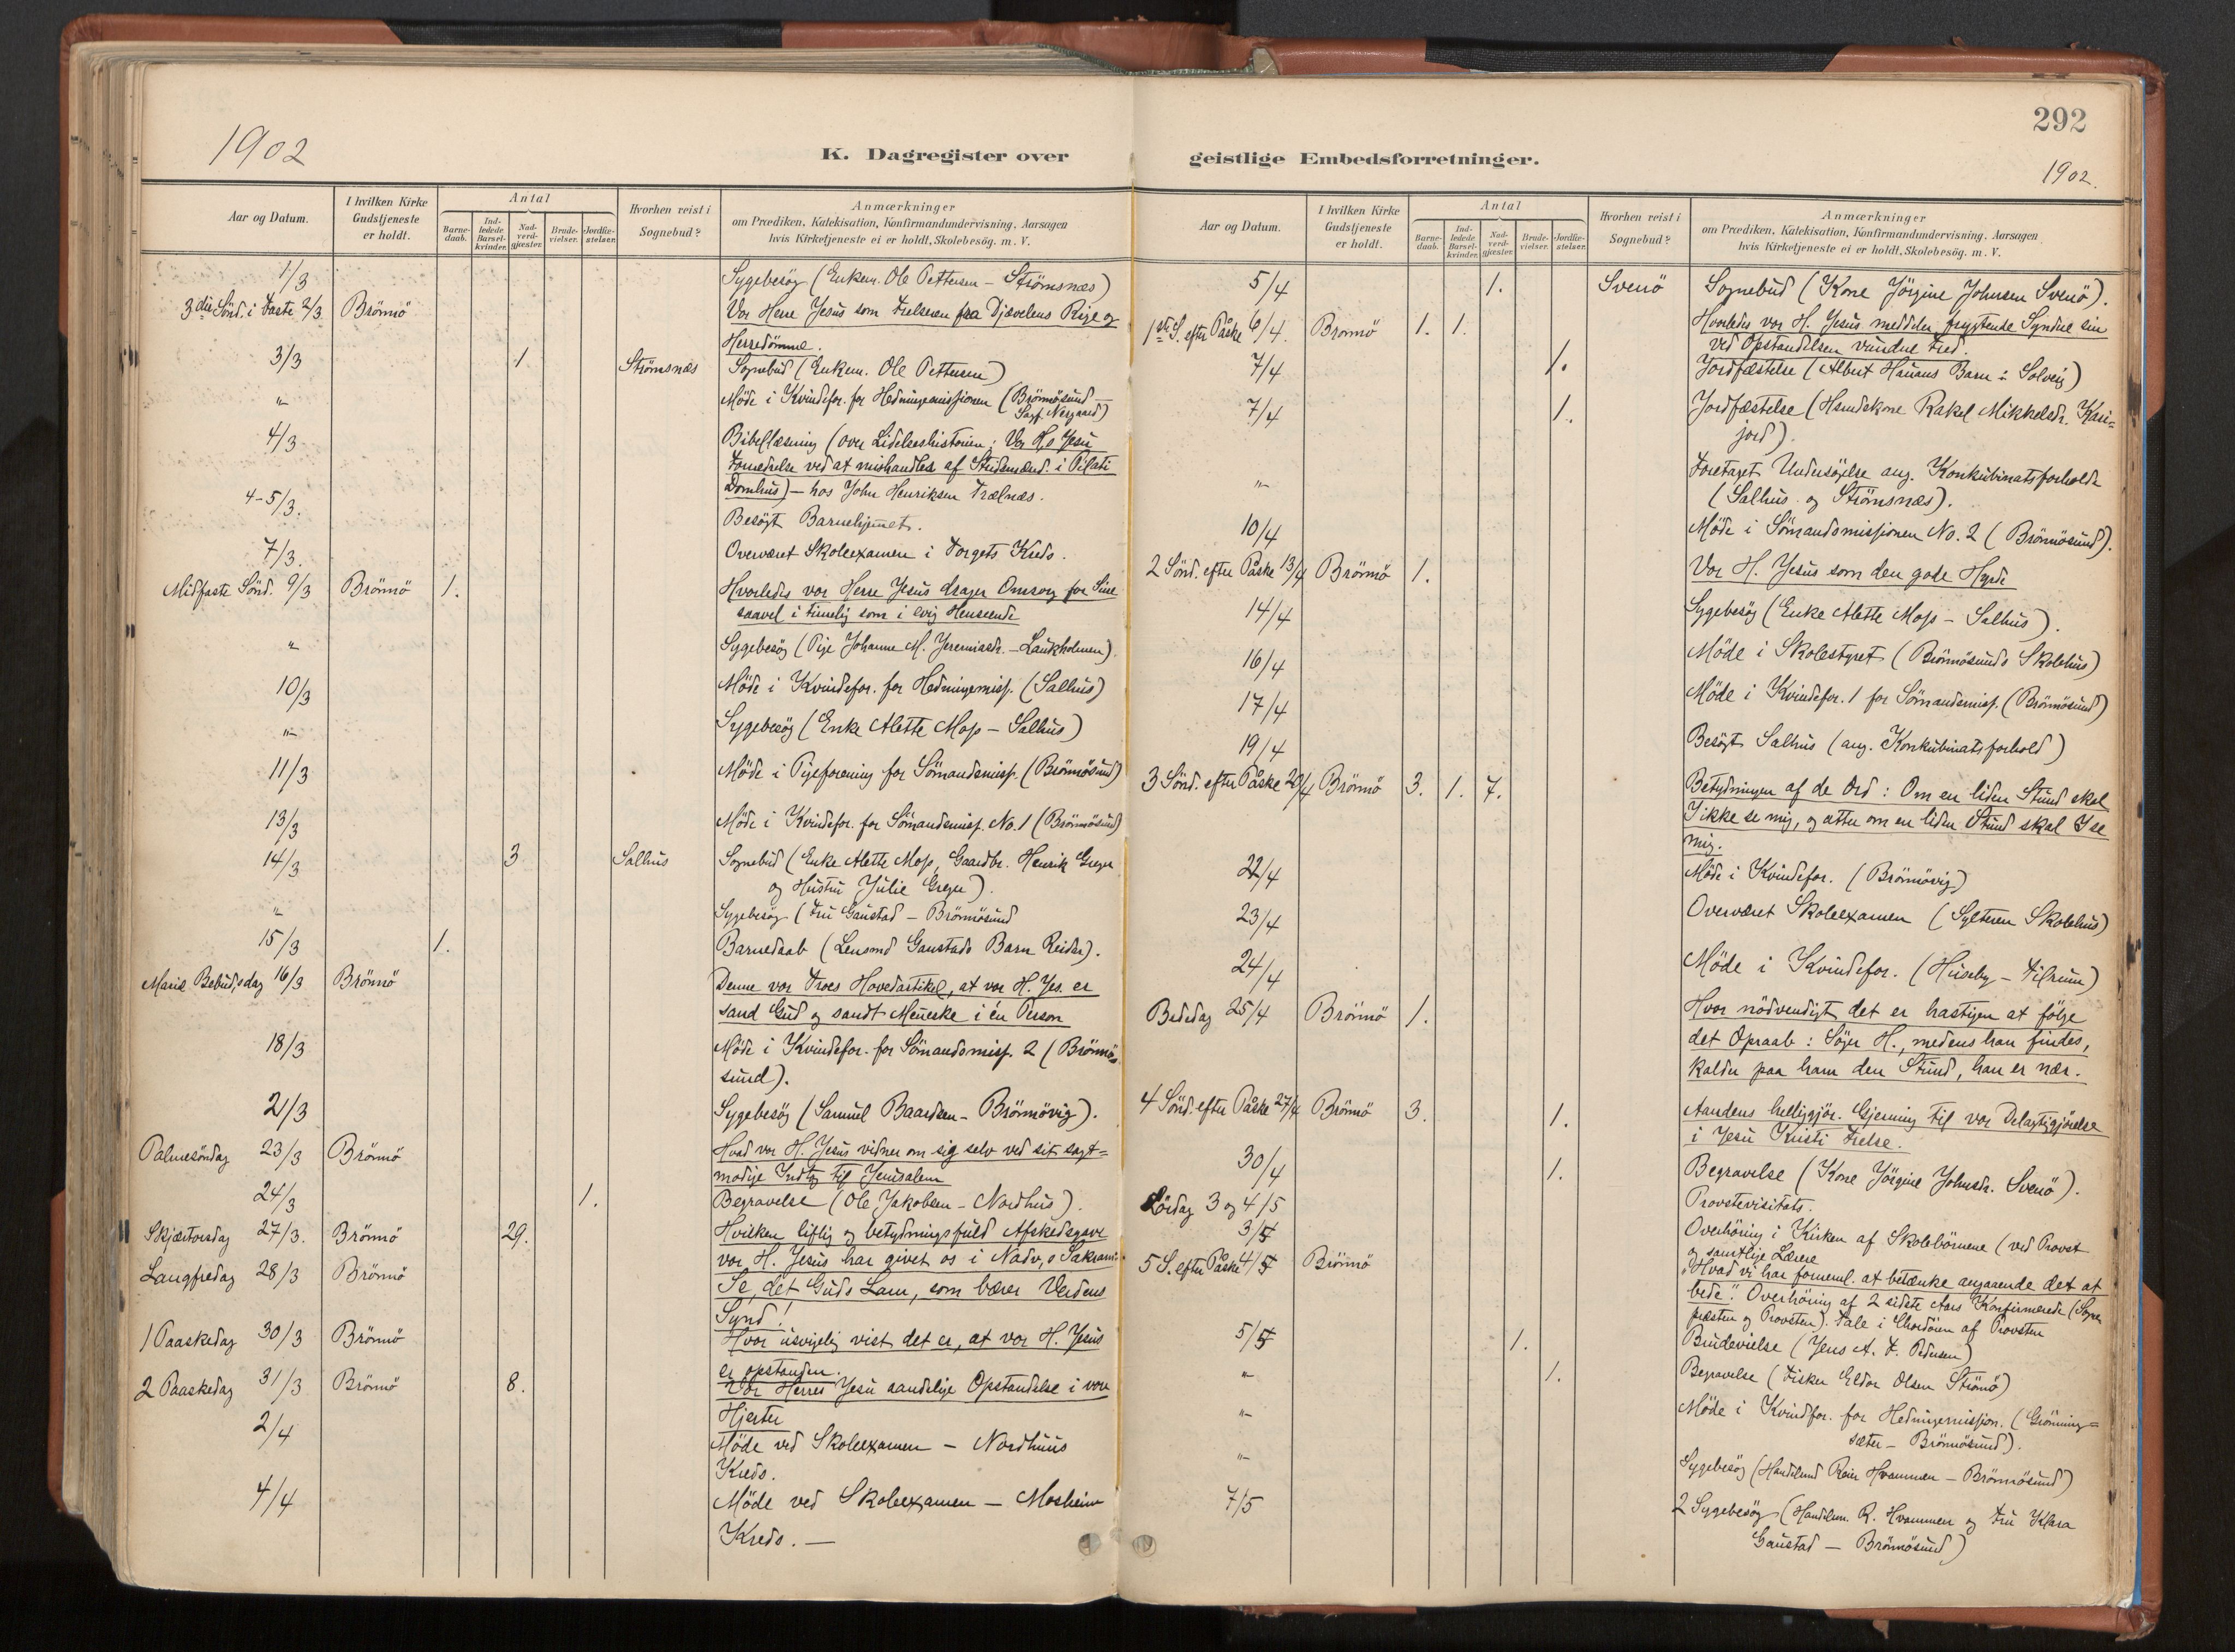 1902
K. Dagregister over
Aar og Datum.
I hvilken Kirke Gudstjeneste er holdt.
Antal
Barnedaab.
Indledede Barselkvinder.
Nadverdgjæster.
Brudevielser.
Jordfæstelser.
Hvorhen reist i Sognebud?
Anmærkninger
om Prædiken, Katekisation, Konfirmandundervisning, Aarsagen
hvis Kirketjeneste ei er holdt, Skolebesög. m. V.
1/3 Sygebesög (Enkem. Ole Pettersen - Strömsnæs)
3die Sönd. i Faste 2/3 Brönnö Vor Herre Jesus som Frelseren fra Djævelens Rige og
Herredömme.
3/3 1 Strömsnæs Sognebud (Enkem. Ole Pettersen)
"- Möde i Kvindefor. for Hedningemissionen (Brönnösund -
Sagf. Nergaard)
4/3 Bibellæsning (over Lidelseshistorien: Vor H. Jesu
Fornedrelse ved at mishandles af Stridsmænd. i Pilati
Domhus) - hos John Henriksen Trælnæs.
4-5/3. Besögt Barnehjemmet.
7/3. Overværet Skoleexamen i Torgets Kreds.
Midfaste Sönd. 9/3 Brönnö 1. Hvorledes vor Herre Jesus drager Omsorg for Sine
saavel i timelig som i evig Henseende
"- Sygebesög (Pige Johanne M. Jeremiasdr. - Laukholmen)
10/3 Möde i Kvindefor. for Hedningemiss. (Salhus)
"- Sygebesög (Enke Alette Moss - Salhus)
11/3 Möde i Pigeforening for Sömandsmiss. (Brönnösund)
13/3 Möde i Kvindefor. for Sömandsmiss. No. 1 (Brönnösund)
14/3 3 Salhus Sognebud (Enke Alette Moss, Gaardbr. Henrik Greger
og Hustru Julie Greger).
"- Sygebesög (Fru Gaustad - Brönnösund
15/3 1. Barnedaab (Lensmd Gaustads Barn Reidar).
Mariæ Bebud,sdag 16/3 Brönnö Denne vor Troes Hovedartikel, at vor H. Jes. er
sand Gud og sandt Menneske i én Person
18/3 Möde i Kvindefor. for Sömandsmiss. 2 (Brönnö-
sund).
21/3 Sygebesög (Samuel Baardsen - Brönnövig).
Palmesöndag 23/3 Brönnö Hvad vor H. Jesus vidner om sig selv ved sit sagt=
modige Indtog til Jerusalem
24/3 1. Begravelse (Ole Jakobsen - Nordhus).
Skjærtorsdag 27/3. Brönnö 29. Hvilken liflig og betydningsfuld Afskedsgave
vor H. Jesus har givet os i Nadv,s Sakram.
Langfredag 28/3 Brönnö Se, det Guds Lam, som bærer Verdens
Synd!
1 Paaskedag 30/3 Brönnö Hvor usvigelig vist det er, at vor H. Jesus
er opstanden.
2 Paaskedag 31/3 Brönnö 8. Vor Herres Jesu aandelige Opstandelse i vore
Hjerter
2/4 Möde ved Skoleexamen - Nordhuus
Kreds.
4/4 Möde ved Skoleexamen - Mosheim
Kreds. -
292
1902.
geistlige Embedsforretninger.
Aar og Datum.
I hvilken Kirke Gudstjeneste er holdt.
Antal
Barnedaab.
Indledede Barselkvinder.
Nadverdgjæster.
Brudevielser.
Jordfæstelser.
Hvorhen reist i Sognebud?
Anmærkninger
om Prædiken, Katekisation, Konfirmandundervisning, Aarsagen
hvis Kirketjeneste ei er holdt, Skolebesög. m. V.
5/4 1. Svenö Sognebud (Kone Jörgine Johnsen Svenö).
1ste S. efter Påske 6/4. Brönnö 1. 1. Hvorledes vor H. Jesus meddeler frygtende Syndere sin
ved Opstandelsen vundne Fred.
7/4 1. Jordfæstelse (Albert Hanans Barn: Solveig)
7/4 1. Jordfæstelse (Hsmdskone Rakel Mikkelsdr. Kari=
jord).
"- Foretaget Undersögelse ang. Konkubinatsforholde
(Salhus og Strömsnæs).
10/4 Möde i Sömandsmissionen No. 2 (Brönnösund).
2 Sönd. efter Påske 13/4 Brönnö 1. Vor H. Jesus som den gode Hyrde
14/4 Sygebesög (Enke Alette Moss - Salhus).
16/4 Möde i Skolestyret (Brönnösunds Skolehus)
17/4 Möde i Kvindefor. 1 for Sömandsmiss. (Brönnösund)
19/4 Besögt Salhus (ang. Konkubinatsforhold)
3 Sönd. efter Påske 20/4 Brönnö 3. 1. 7. Betydningen af de Ord: Om en liden Stund skal
I ikke se mig, og atter om en liden Stund skal I se
mig.
22/4 Möde i Kvindefor. (Brönnövig)
23/4 Overværet Skoleexamen (Sylteren Skolehus)
24/4 Möde i Kvindefor. (Huseby - Tilrum)
Bededag 25/4 Brönnö 1. Hvor nödvendigt det er hastigen at følge
det Opraab: Söger H., medens han findes,
kalder paa ham den Stund, han er nær.
4 Sönd. efter Påske 27/4 Brönnö 3. 1. Aandens helliggjör. Gjerning til vor Delagtiggjörelse
i Jesu Kristi Frelse.
30/4 1. Begravelse (Kone Jörgine Johnsdr. Svenö).
Lördag 3 og 4/5 Provstevisitats.
3/5 Overhöring i Kirken af Skolebörnene (ved Provst
og samtlige Lærere
5 S. efter Påske 4/5 Brönnö "Hvad vi har forneml. at betænke angaaende det at
bede". Overhöring af 2 sidste Aars Konfirmerede (Sogne
præsten og Provsten). Tale i Chordören af Provsten
5/5 1. Brudevielse (Jens A. F. Pedersen)
"- 1. Begravelse (Fisker Eldor Olsen Strömö)
"- Möde i Kvindfor. for Hedningemission. (Grönning=
sæter - Brönnösund).
"- Sygebesög (Handelsmd Rein Hvammen - Brönnösund)
7/5 2 Sygebesög (Handelsm. R. Hvammen og Fru Klara
Gaustad - Brönnösund)